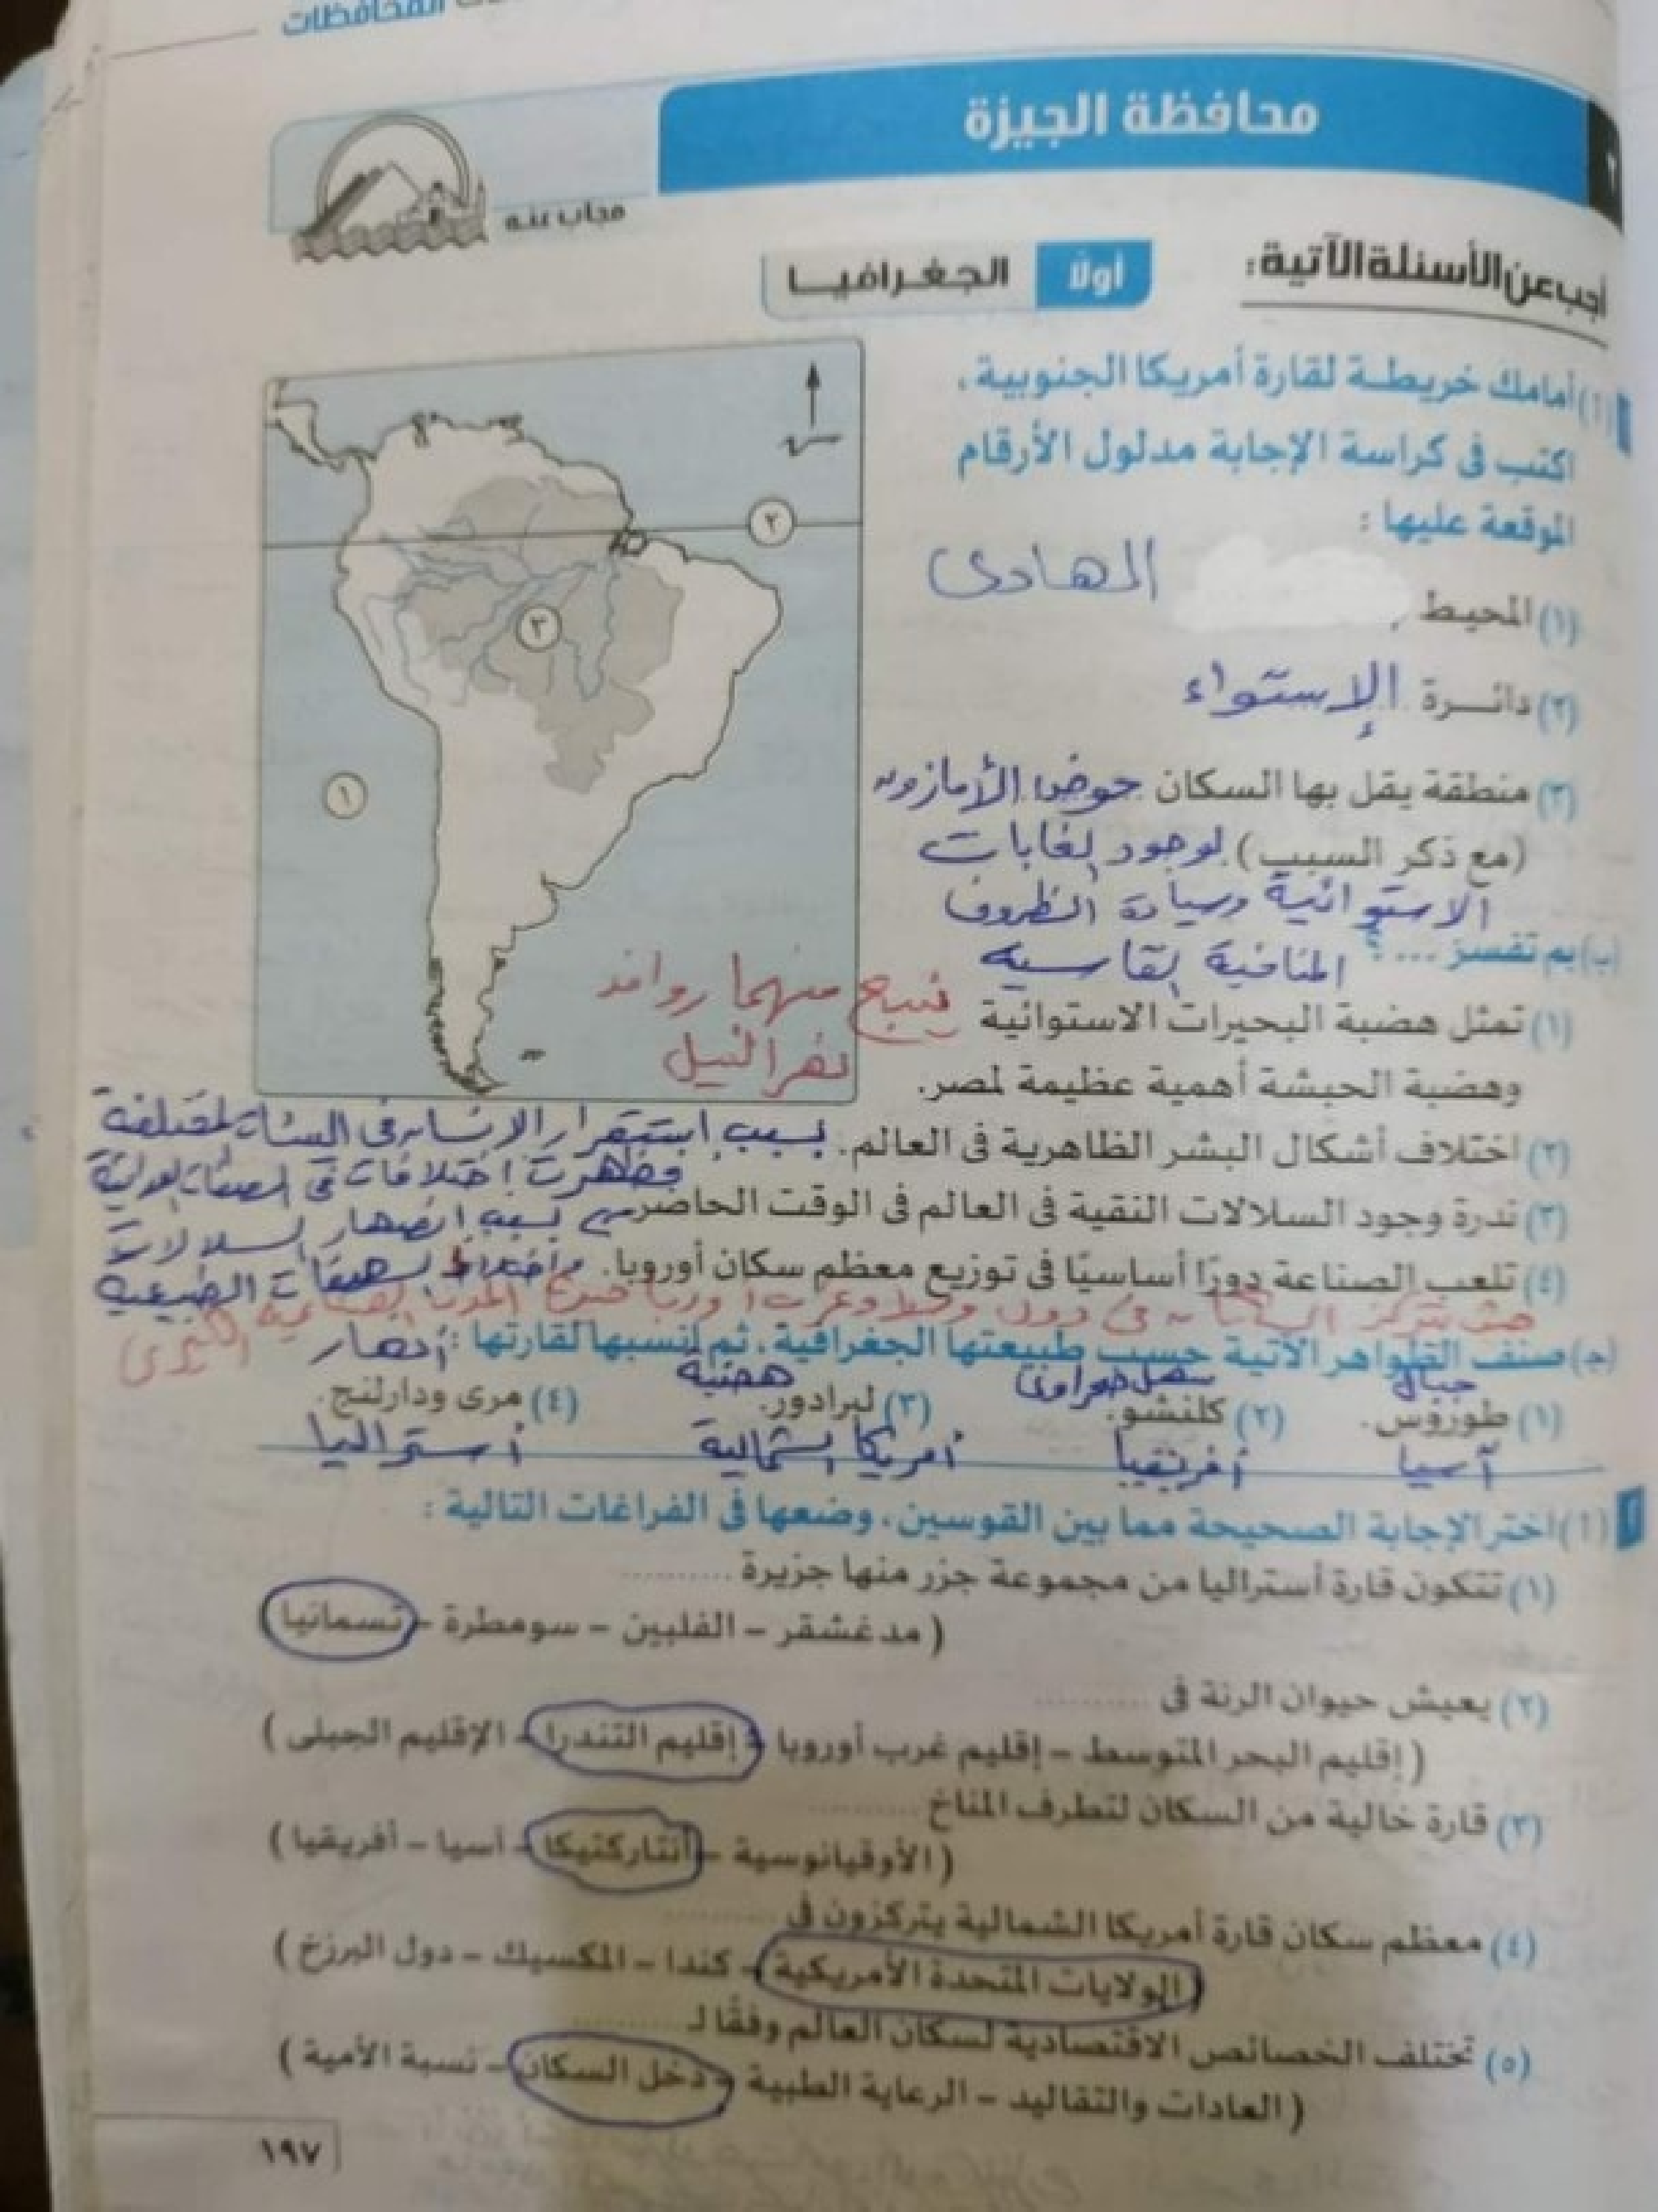 المحافظات
محافظة الجيزة
مجاب عنه
أجب عن الأسئلة الآتية:
أولًا الجغرافيا
(أ) أمامك خريطة لقارة أمريكا الجنوبية،
اكتب فى كراسة الإجابة مدلول الأرقام
الموقعة عليها:
(١) المحيط الهادى
(٢) دائرة الإستواء
(٣) منطقة يقل بها السكان حوض الأمازون
(مع ذكر السبب) لوجود الغابات
الاستوائية وسيادة الظروف
المناخية القاسية
٢
٣
١
(ب) بم تفسر ...؟
(١) تمثل هضبة البحيرات الاستوائية ينبع منهما روافد
وهضبة الحبشة أهمية عظيمة لمصر. نهر النيل
(٢) اختلاف أشكال البشر الظاهرية فى العالم. بسبب استقرار الإنسان فى البيئات المختلفة
فظهرت اختلافات فى الصفات
(٣) ندرة وجود السلالات النقية فى العالم فى الوقت الحاضر بسبب انصهار السلالات
(٤) تلعب الصناعة دورًا أساسيًا فى توزيع معظم سكان أوروبا. واختلاط الصفات الطبيعية
حيث يتركز السكان فى دول وسط وغرب أوروبا حيث المدن الصناعية الكبرى
(ج) صنف الظواهر الآتية حسب طبيعتها الجغرافية، ثم انسبها لقارتها:
جبال سهل صحراوى هضبة أنهار
(١) طوروس. (٢) كلنشو. (٣) لبرادور. (٤) مرى ودارلنج.
آسيا أفريقيا أمريكا الشمالية أستراليا
٢ (أ) اختر الإجابة الصحيحة مما بين القوسين، وضعها فى الفراغات التالية:
(١) تتكون قارة أستراليا من مجموعة جزر منها جزيرة ..........
( مدغشقر – الفلبين – سومطرة – تسمانيا )
(٢) يعيش حيوان الرنة فى ..........
( إقليم البحر المتوسط – إقليم غرب أوروبا – إقليم التندرا – الإقليم الجبلى )
(٣) قارة خالية من السكان لتطرف المناخ ..........
( الأوقيانوسية – أنتاركتيكا – آسيا – أفريقيا )
(٤) معظم سكان قارة أمريكا الشمالية يتركزون فى ..........
( الولايات المتحدة الأمريكية – كندا – المكسيك – دول البرزخ )
(٥) تختلف الخصائص الاقتصادية لسكان العالم وفقًا لـ ..........
( العادات والتقاليد – الرعاية الطبية – دخل السكان – نسبة الأمية )
١٩٧